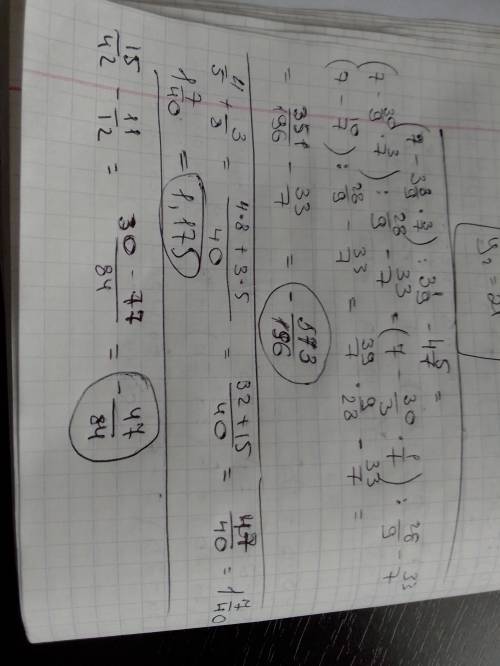 y₂ =
(7 - 3 3/9 · 3/7) : 3 1/9 - 4 5/7 =
(7 - 30/9 · 3/7) : 28/9 - 33/7 = (7 - 30/3 · 1/7) : 28/9 - 33/7
(7 - 10/7) : 28/9 - 33/7 = 39/7 · 9/28 - 33/7 =
= 351/196 - 33/7 = - 573/196
4/5 + 3/8 = 4·8 + 3·5/40 = 32 + 15/40 = 47/40 = 1 7/40
1 7/40 = 1,175
15/42 - 11/12 = 30 - 77/84 = - 47/84